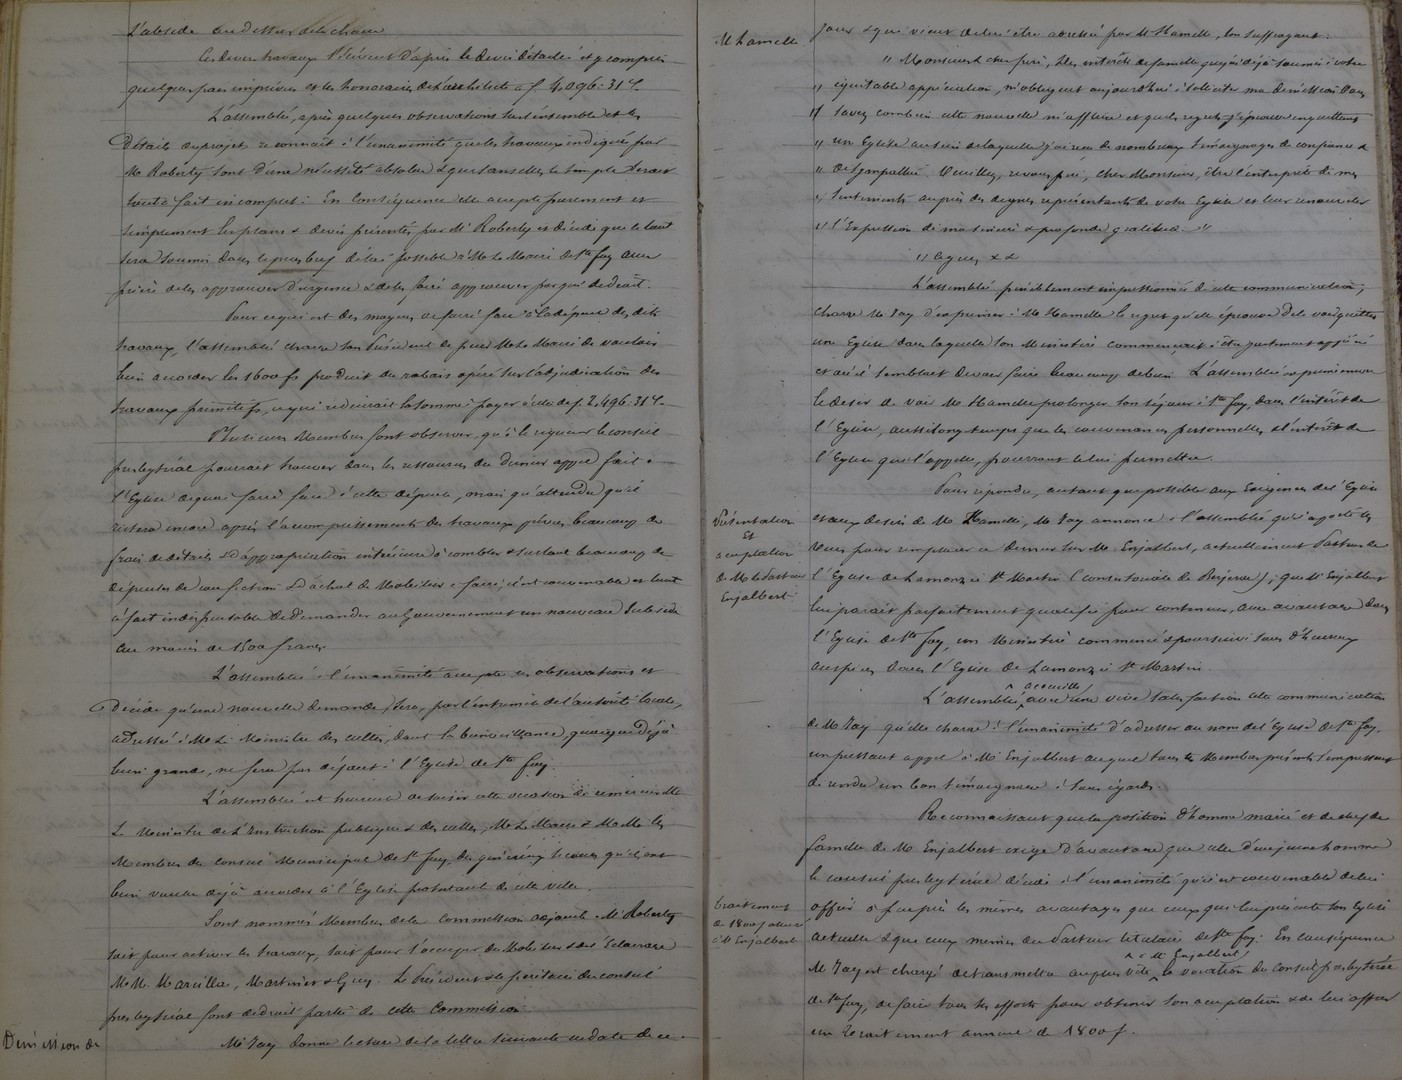 L'abside au dessus de la chaire.
Ces divers travaux s'élèvent d'après le devis détaillé et y compris
quelques frais imprévus et les honoraires de l'architecte à f 4,096.31c.
L'assemblée, après quelques observations sur l'ensemble et les
détails du projet reconnaît à l'unanimité que les travaux indiqués par
Mr Roberty sont d'une nécessité absolue & que sans elles le temple serait
tout à fait incomplet. En conséquence elle accepte purement et
simplement les plans & devis présentés par Mr Roberty et décide que le tout
sera soumis dans le plus bref délai possible à Mr le Maire de Ste foy avec
prière de les approuver d'urgence & de les faire approuver par qui de droit.
Pour ce qui est des moyens de faire face à la dépense des dits
travaux, l'assemblée charge son Président de prier Mr le Maire de vouloir
bien accorder les 1600 fs produit du rabais opéré sur l'adjudication des
travaux primitifs, ce qui réduirait la somme à payer à celle de f. 2,496.31c.
Plusieurs Membres font observer qu'à la rigueur le conseil
presbytéral pourrait trouver dans les ressources du dernier appel fait à
l'Eglise de quoi faire face à cette dépense, mais qu'attendu qu'il
restera encore après l'accomplissement des travaux prévus beaucoup de
frais de détails & d'appropriation intérieure à combler & surtout beaucoup de
dépenses de confection & d'achat de Mobilier à faire, il est convenable et tout
à fait indispensable de demander au Gouvernement un nouveau subside
au moins de 1500 francs.
L'assemblée à l'unanimité accepte ces observations et
décide qu'une nouvelle demande sera, par l'entremise de l'autorité locale,
adressée à Mr le Ministre des cultes, dont la bienveillance, quoique déjà
bien grande, ne fera pas défaut à l'Eglise de Ste foy.
L'assemblée est heureuse de saisir cette occasion de remercier
le Ministre de l'Instruction publique & des cultes, Mr le Maire & MM. les
Membres du conseil Municipal de Ste foy des généreux secours qu'ils ont
bien voulu déjà accorder à l'Eglise protestante de cette ville.
Sont nommés Membres de la commission adjointe à Mr Roberty
soit pour activer les travaux, soit pour s'occuper du Mobilier & de l'Eclairage
M.M. Marcillac, Martinier & Guy. Le Président & le secrétaire du conseil
presbytéral font de droit partie de cette commission.
Démission de
Mr Jay donne lecture de la lettre suivante en date de ce
Mr Hamelle
jour & qui vient de lui être adressée par Mr Hamelle, son suffragant:
" Monsieur & cher frère, Des intérêts de famille que j'ai déjà soumis à votre
" équitable appréciation, m'obligent aujourd'hui à solliciter ma démission. Vous
" savez combien cette nouvelle m'afflige et quels regrets j'éprouve en quittant
" une Eglise au sein de laquelle j'ai reçu de nombreux témoignages de confiance &
" de sympathie. Veuillez, je vous prie, cher Monsieur, être l'interprète de mes
" sentiments auprès des dignes représentants de votre Eglise et leur renouveler
" l'Expression de ma sincère & profonde gratitude. "
" Agréez &a
L'assemblée péniblement impressionnée de cette communication,
charge Mr Jay d'exprimer à Mr Hamelle le regret qu'elle éprouve de le voir quitter
une Eglise dans laquelle son Ministère commençait à être justement apprécié
et où il semblait devoir faire beaucoup de bien. L'assemblée exprime
le désir de voir Mr Hamelle prolonger son séjour à Ste foy, dans l'intérêt de
l'Eglise, aussi longtemps que les convenances personnelles et l'intérêt de
l'Eglise qui l'appelle, pourront le lui permettre.
Présentation
et
acceptation
de Mr le Pasteur
Enjalbert
Pour répondre, autant que possible aux exigences de l'Eglise
et aux désirs de Mr Hamelle, Mr Jay annonce à l'assemblée qu'il a porté les
vues pour remplacer ce dernier sur Mr Enjalbert, actuellement Pasteur de
l'Eglise de Lamonzie St Martin (consistoriale de Bergerac); que Mr Enjalbert
lui paraît parfaitement qualifié pour continuer, avec avantage dans
l'Eglise de Ste foy, un Ministère commencé & poursuivi sous d'heureux
auspices dans l'Eglise de Lamonzie St Martin.
L'assemblée accueille avec une vive satisfaction cette communication
de Mr Jay qu'elle charge à l'unanimité d'adresser au nom de l'Eglise de Ste foy,
un pressant appel à Mr Enjalbert auquel tous les Membres présents s'empressent
de rendre un bon témoignage à tous égards.
Reconnaissant que la position d'homme marié et de chef de
famille de Mr Enjalbert exige d'avantage que celle d'un jeune homme
le conseil presbytéral décide à l'unanimité qu'il est convenable de lui
traitement
de 1800f alloué
à Mr Enjalbert
offrir à peu près les mêmes avantages que ceux que lui présente son Eglise
actuelle & que ceux mêmes du Pasteur titulaire de Ste foy. En conséquence
Mr Jay est chargé de transmettre au plus vite à Mr Enjalbert la vocation du conseil presbytéral
de Ste foy, de faire tous ses efforts pour obtenir son acceptation & de lui offrir
un traitement annuel de 1800 f.